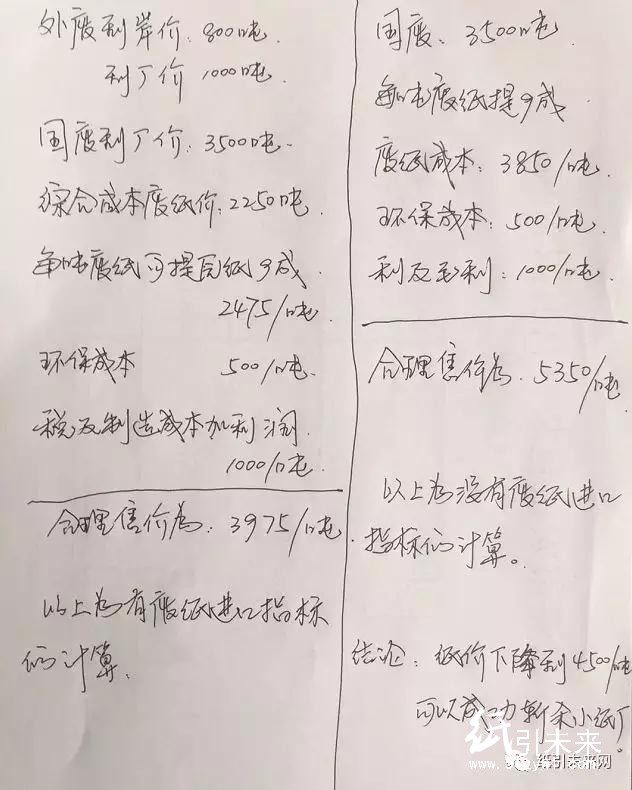 外废到岸价:800吨
到厂价 1000吨.
国废到厂价:3500吨.
综合成本废纸价:2250吨.
每吨废纸可提瓦纸9成.
2475/吨
环保成本 500/吨.
税及制造成本加利润.
1000/吨
合理售价为:3975/吨.
以上为有废纸进口指标
的计算.
国废:3500吨.
每吨废纸提9成
废纸成本:3850/吨.
环保成本:500/吨.
利及毛利:1000/吨.
合理售价为.5350/吨.
以上为没有废纸进口
指标的计算。
结论:纸价下降到4500/吨
可以成功斩杀小纸厂!
纸引未来
纸引未来网